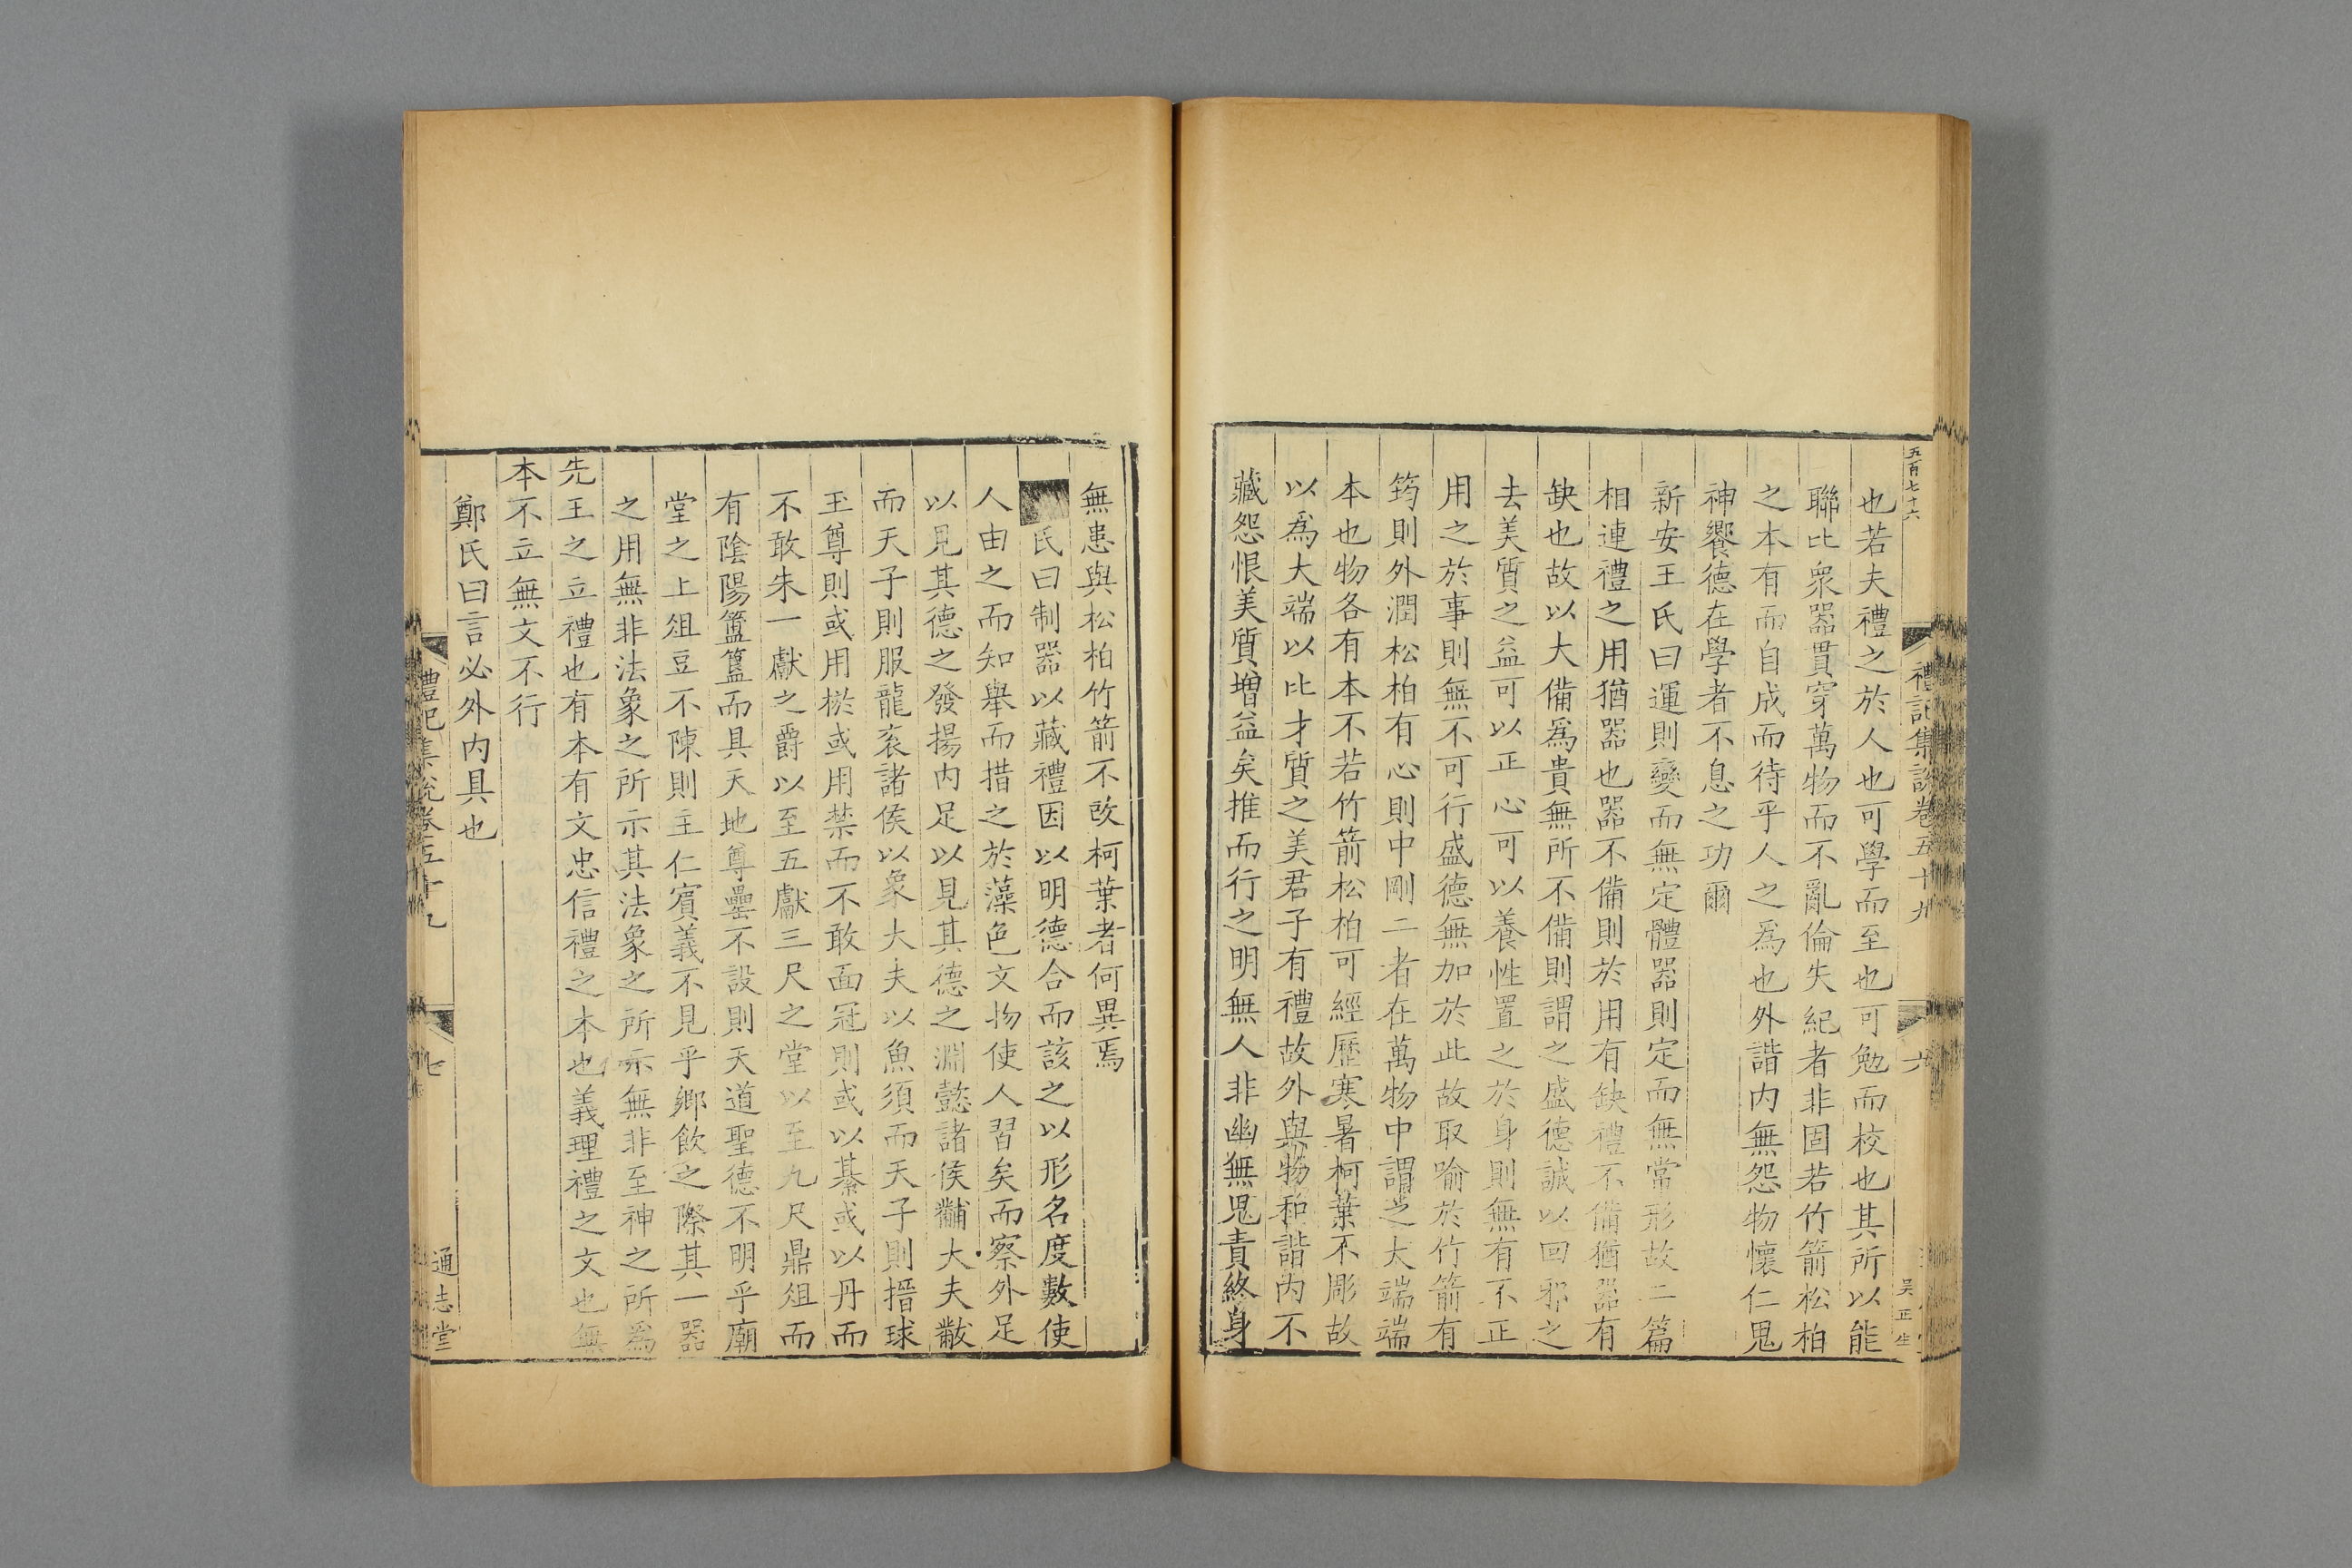 五百七十六
禮記集說卷五十九
六
吴正生
也若夫禮之於人也可學而至也可勉而校也其所以能
聯比衆器貫穿萬物而不亂倫失紀者非固若竹箭松柏
之本有而自成而待乎人之爲也外諧内無怨物懷仁鬼
神饗德在學者不息之功爾
新安王氏曰運則變而無定體器則定而無常形故二篇
相連禮之用猶器也器不備則於用有缺禮不備猶器有
缺也故以大備爲貴無所不備則謂之盛德誠以回邪之
去美質之益可以正心可以養性置之於身則無有不正
用之於事則無不可行盛德無加於此故取喻於竹箭有
筠則外潤松柏有心則中剛二者在萬物中謂之大端端
本也物各有本不若竹箭松柏可經歷寒暑柯葉不彫故
以爲大端以比才質之美君子有禮故外與物和諧内不
藏怨恨美質增益矣推而行之明無人非幽無鬼責終身
無患與松柏竹箭不改柯葉者何異焉
氏曰制器以藏禮因以明德合而該之以形名度數使
人由之而知舉而措之於藻色文物使人習矣而察外足
以見其德之發揚内足以見其德之淵懿諸侯黼大夫黻
而天子則服龍衮諸侯以象大夫以魚須而天子則搢球
玉尊則或用棜或用禁而不敢面冠則或以綦或以丹而
不敢朱一獻之爵以至五獻三尺之堂以至九尺鼎俎而
有陰陽簠簋而具天地尊罍不設則天道聖德不明乎廟
堂之上俎豆不陳則主仁賓義不見乎鄉飲之際其一器
之用無非法象之所示其法象之所示無非至神之所爲
先王之立禮也有本有文忠信禮之本也義理禮之文也無
本不立無文不行
鄭氏曰言必外内具也
禮記集說卷五十九
七
通志堂